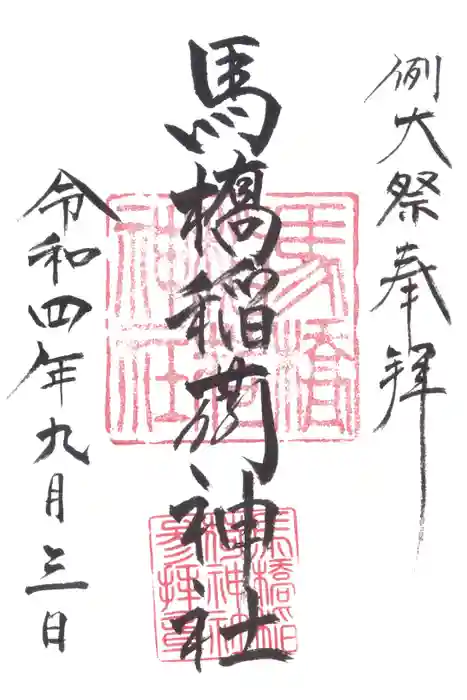 例大祭奉拝
馬橋稲荷神社
令和四年九月三日
馬橋稲荷神社
馬橋稲荷神社参拝章